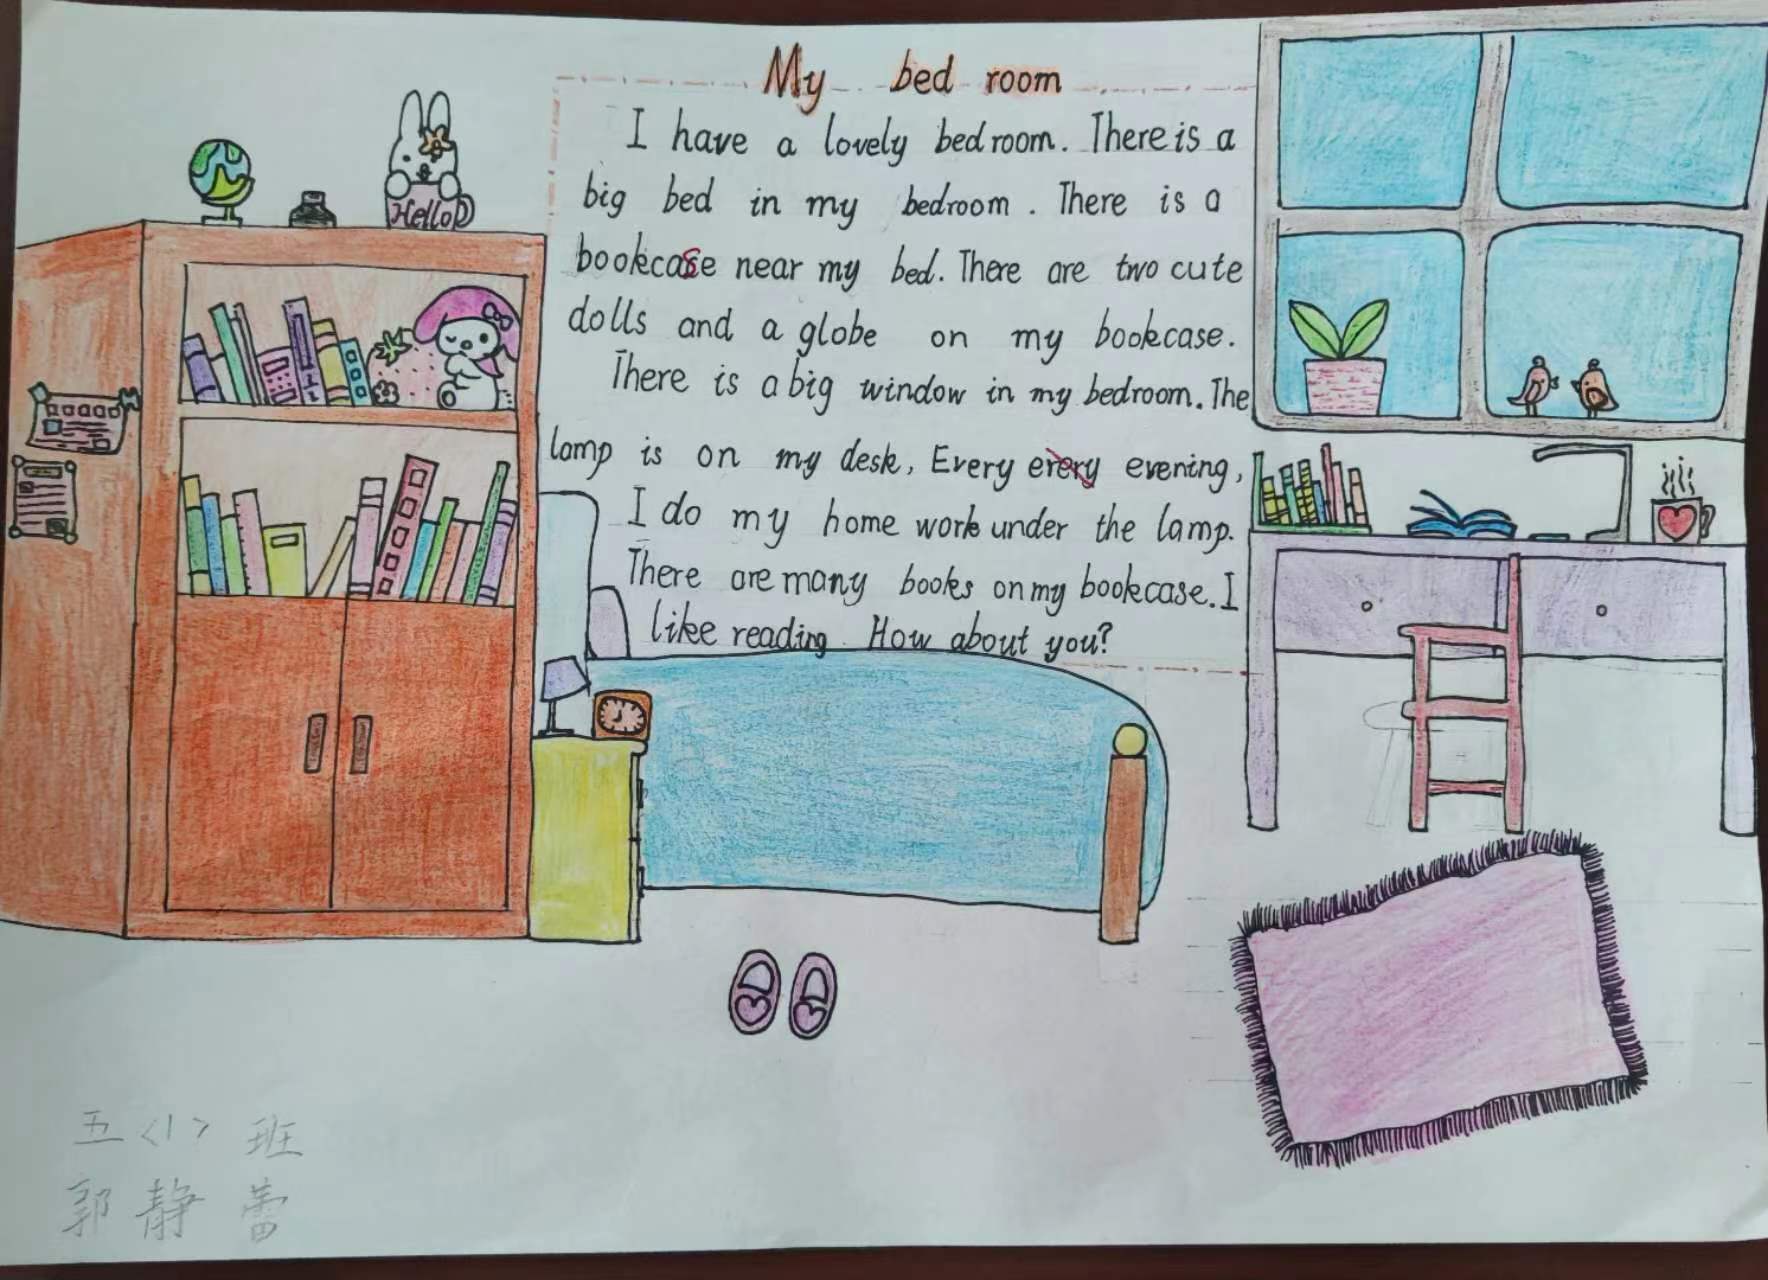 My bed room
I have a lovely bedroom. There is a
big bed in my bedroom. There is a
bookcase near my bed. There are two cute
dolls and a globe on my bookcase.
There is a big window in my bedroom. The
lamp is on my desk, Every erery evening,
I do my home work under the lamp.
There are many books on my bookcase. I
like reading. How about you?
Hello
五<1>班
郭静蕾